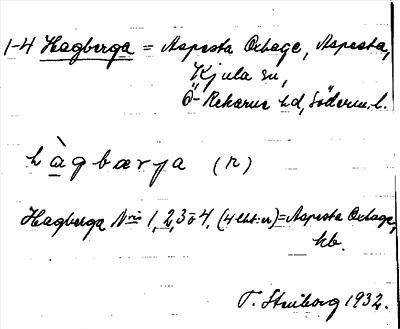 1-4 Hagberga = Aspesta Oxhage, Aspesta,
Kjula sn,
Ö-Rekarne hd, Söderm. l.
hàgbærja (n)
Hagberga N:is 1, 2, 3 o 4. (4 lht:er) = Aspesta Oxhage,
kb.
T. Streiborg 1932.